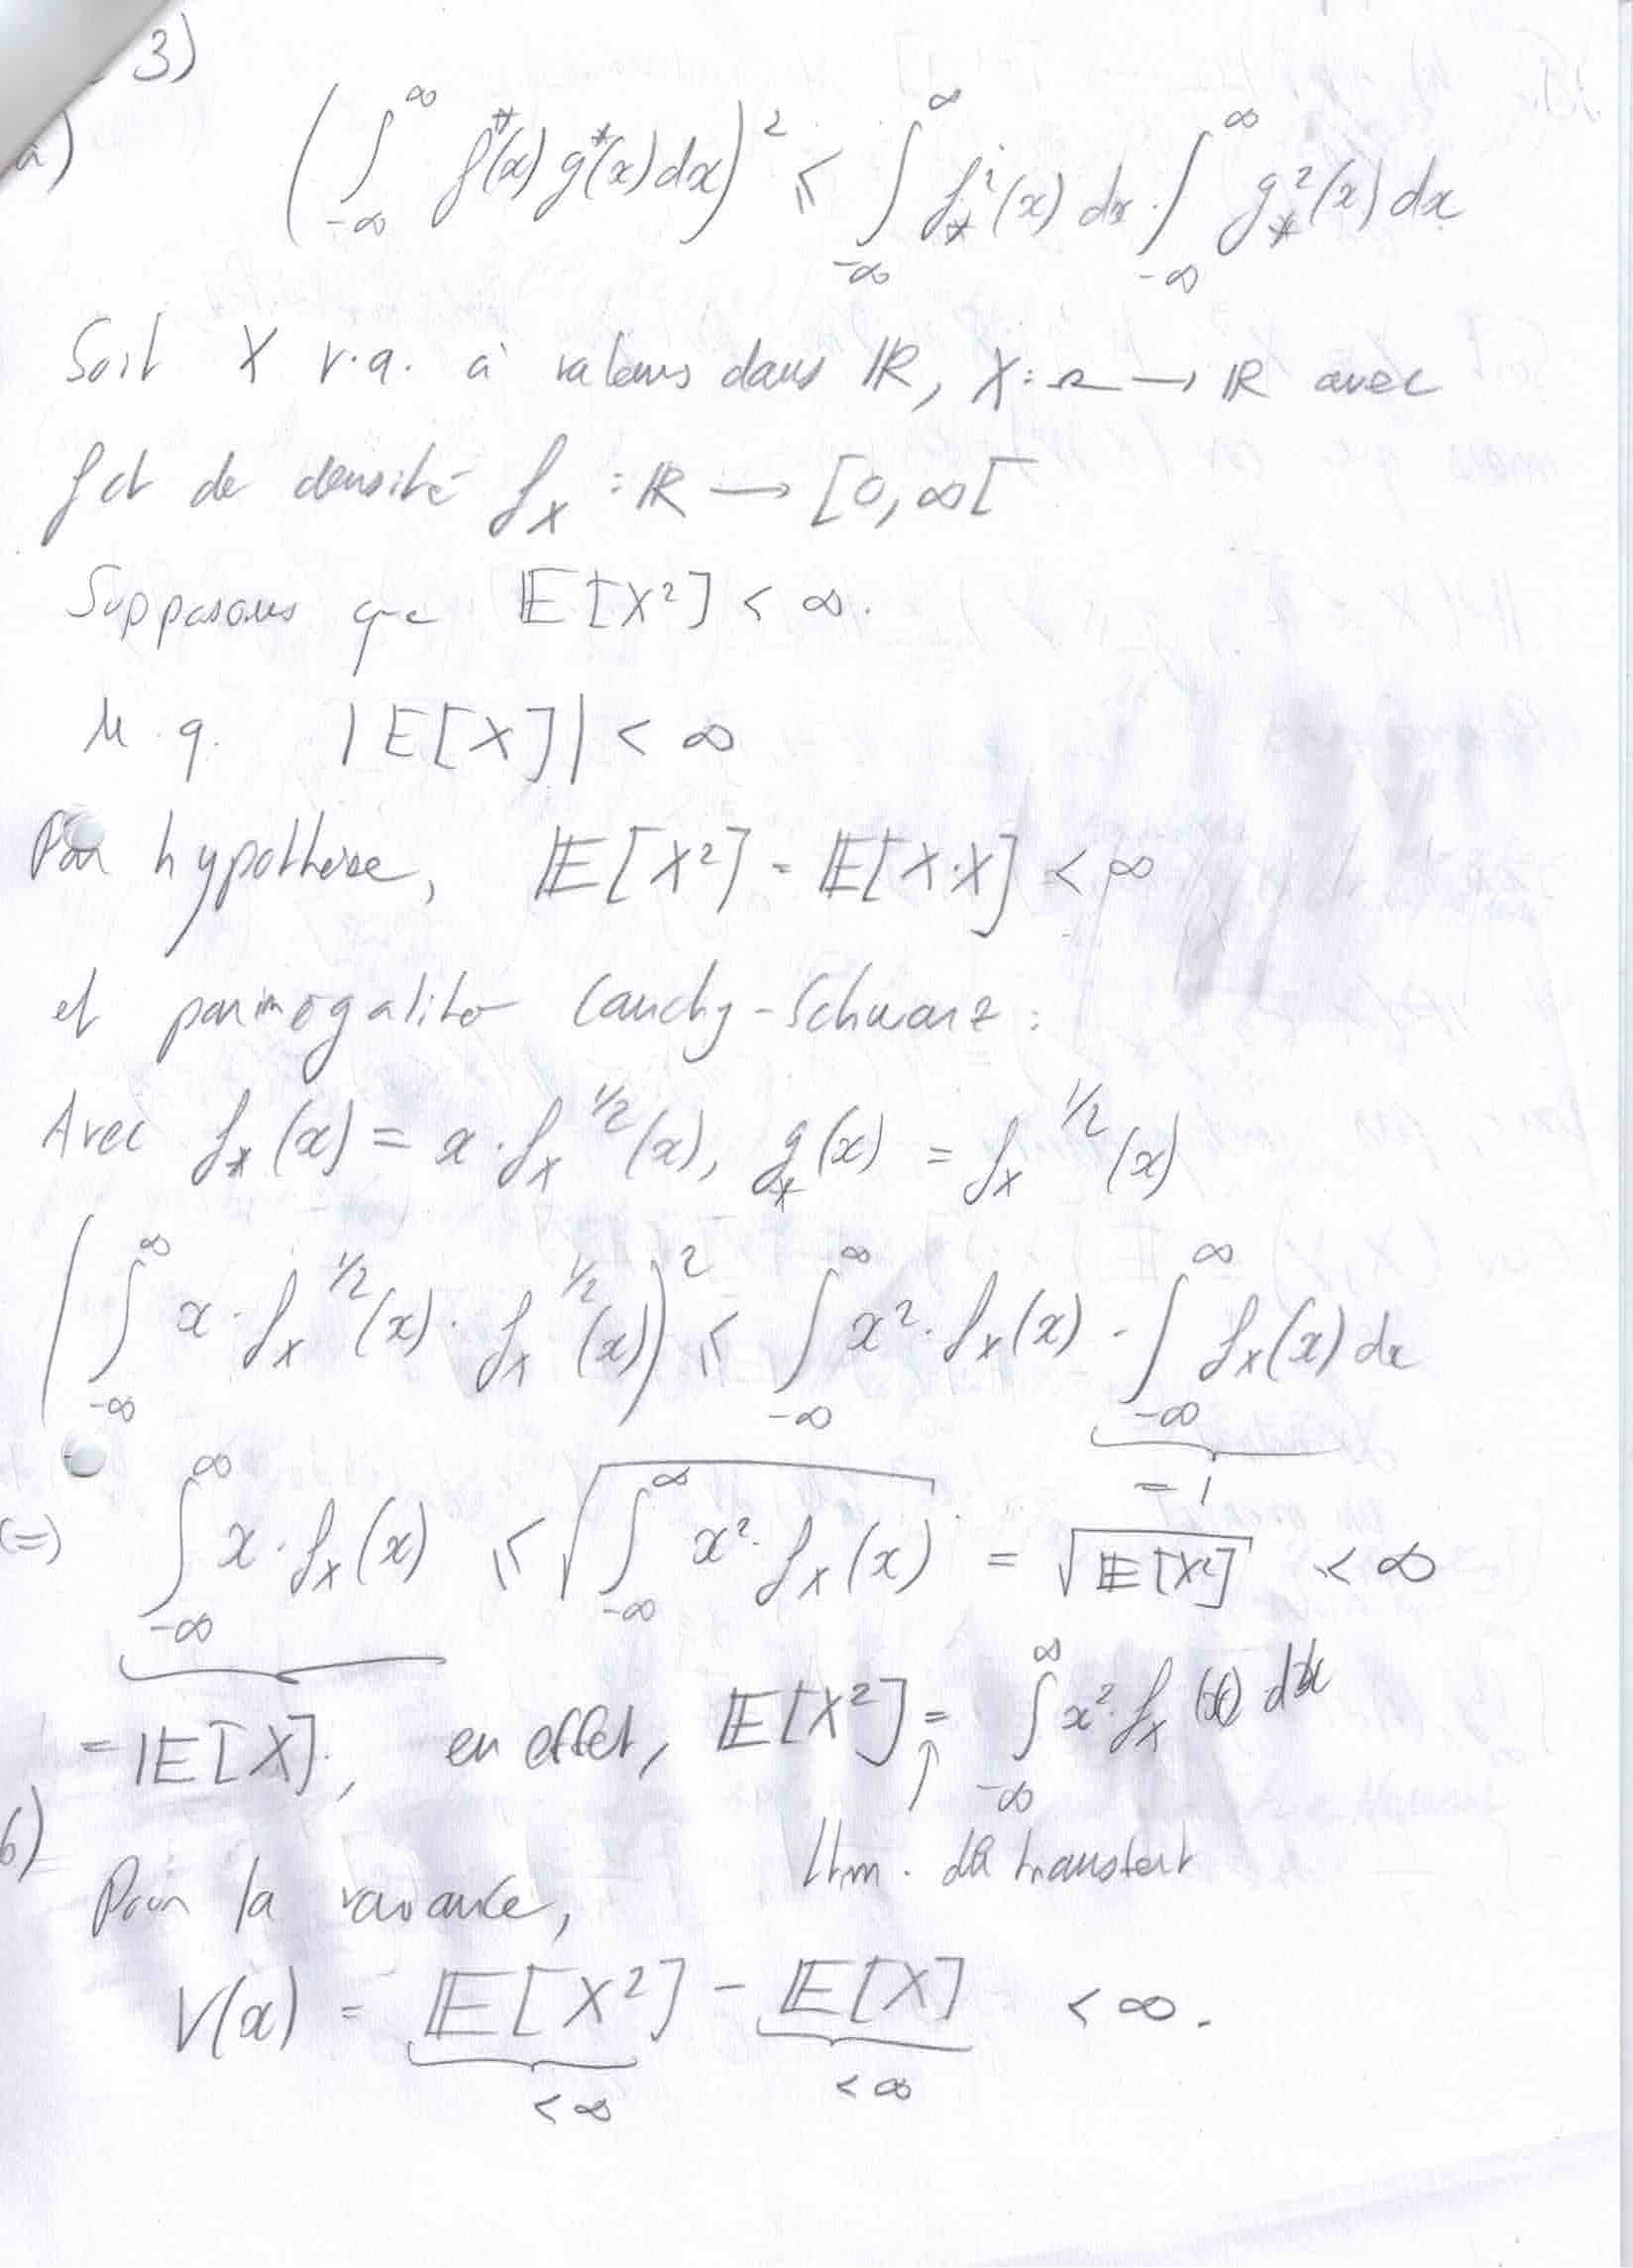 3)
a) ( ∫_{-∞}^{∞} f*(x) g*(x) dx )² ≤ ∫_{-∞}^{∞} f_*²(x) dx · ∫_{-∞}^{∞} g_*²(x) dx
Soit X v.a. à valeurs dans ℝ, X : Ω → ℝ avec
fct de densité f_X : ℝ → [0, ∞[
Supposons que 𝔼[X²] < ∞.
M.q. |E[X]| < ∞
Par hypothèse, 𝔼[X²] = 𝔼[X·X] < ∞
et par inégalité Cauchy-Schwarz :
Avec f_*(x) = x · f_X^{1/2}(x), g_*(x) = f_X^{1/2}(x)
( ∫_{-∞}^{∞} x · f_X^{1/2}(x) · f_X^{1/2}(x) )² ≤ ∫_{-∞}^{∞} x² · f_X(x) · ∫_{-∞}^{∞} f_X(x) dx
= 1
(=) ∫_{-∞}^{∞} x · f_X(x) ≤ √( ∫_{-∞}^{∞} x² · f_X(x) ) = √(𝔼[X²]) < ∞
= 𝔼[X], en effet, 𝔼[X²] = ∫_{-∞}^{∞} x² · f_X(x) dx
↑
thm. de transfert
b)
Pour la variance,
V(x) = 𝔼[X²] - 𝔼[X] < ∞.
< ∞ < ∞